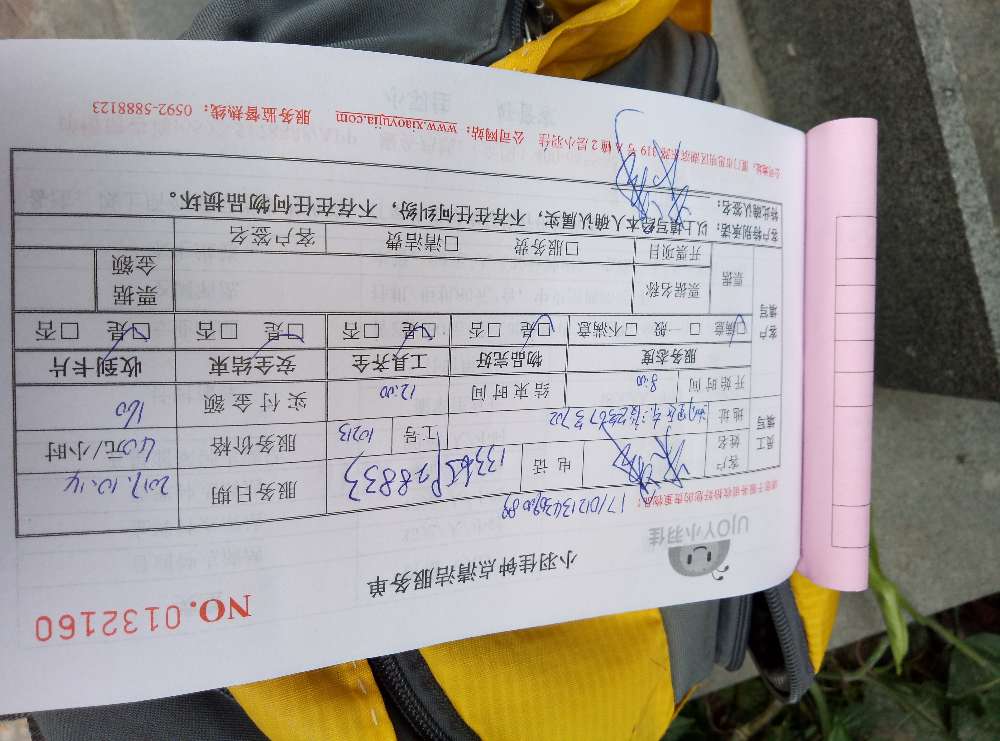 NO.0132160
小羽佳钟点清洁服务单
UJOY小羽佳
请您于服务前收拾好您的贵重物品:
员工填写 客户姓名 电话 服务日期 2017.10.14
地址 工号 10213 服务价格 40元/小时
开始时间 8:00 结束时间 12:00 实付金额 160
客户填写 服务态度 物品完好 工具齐全 安全结束 收到卡片
☑满意 □一般 □不满意 ☑是 □否 ☑是 □否 ☑是 □否 ☑是 □否
票据 票据名称 票据金额
开票项目 □服务费 □清洁费 客户签名
客户特别承诺: 以上填写经本人确认属实,不存在任何纠纷,不存在任何物品损坏。
特此确认签名:
公司网站:www.xiaoyujia.com 服务监督热线:0592-5888123